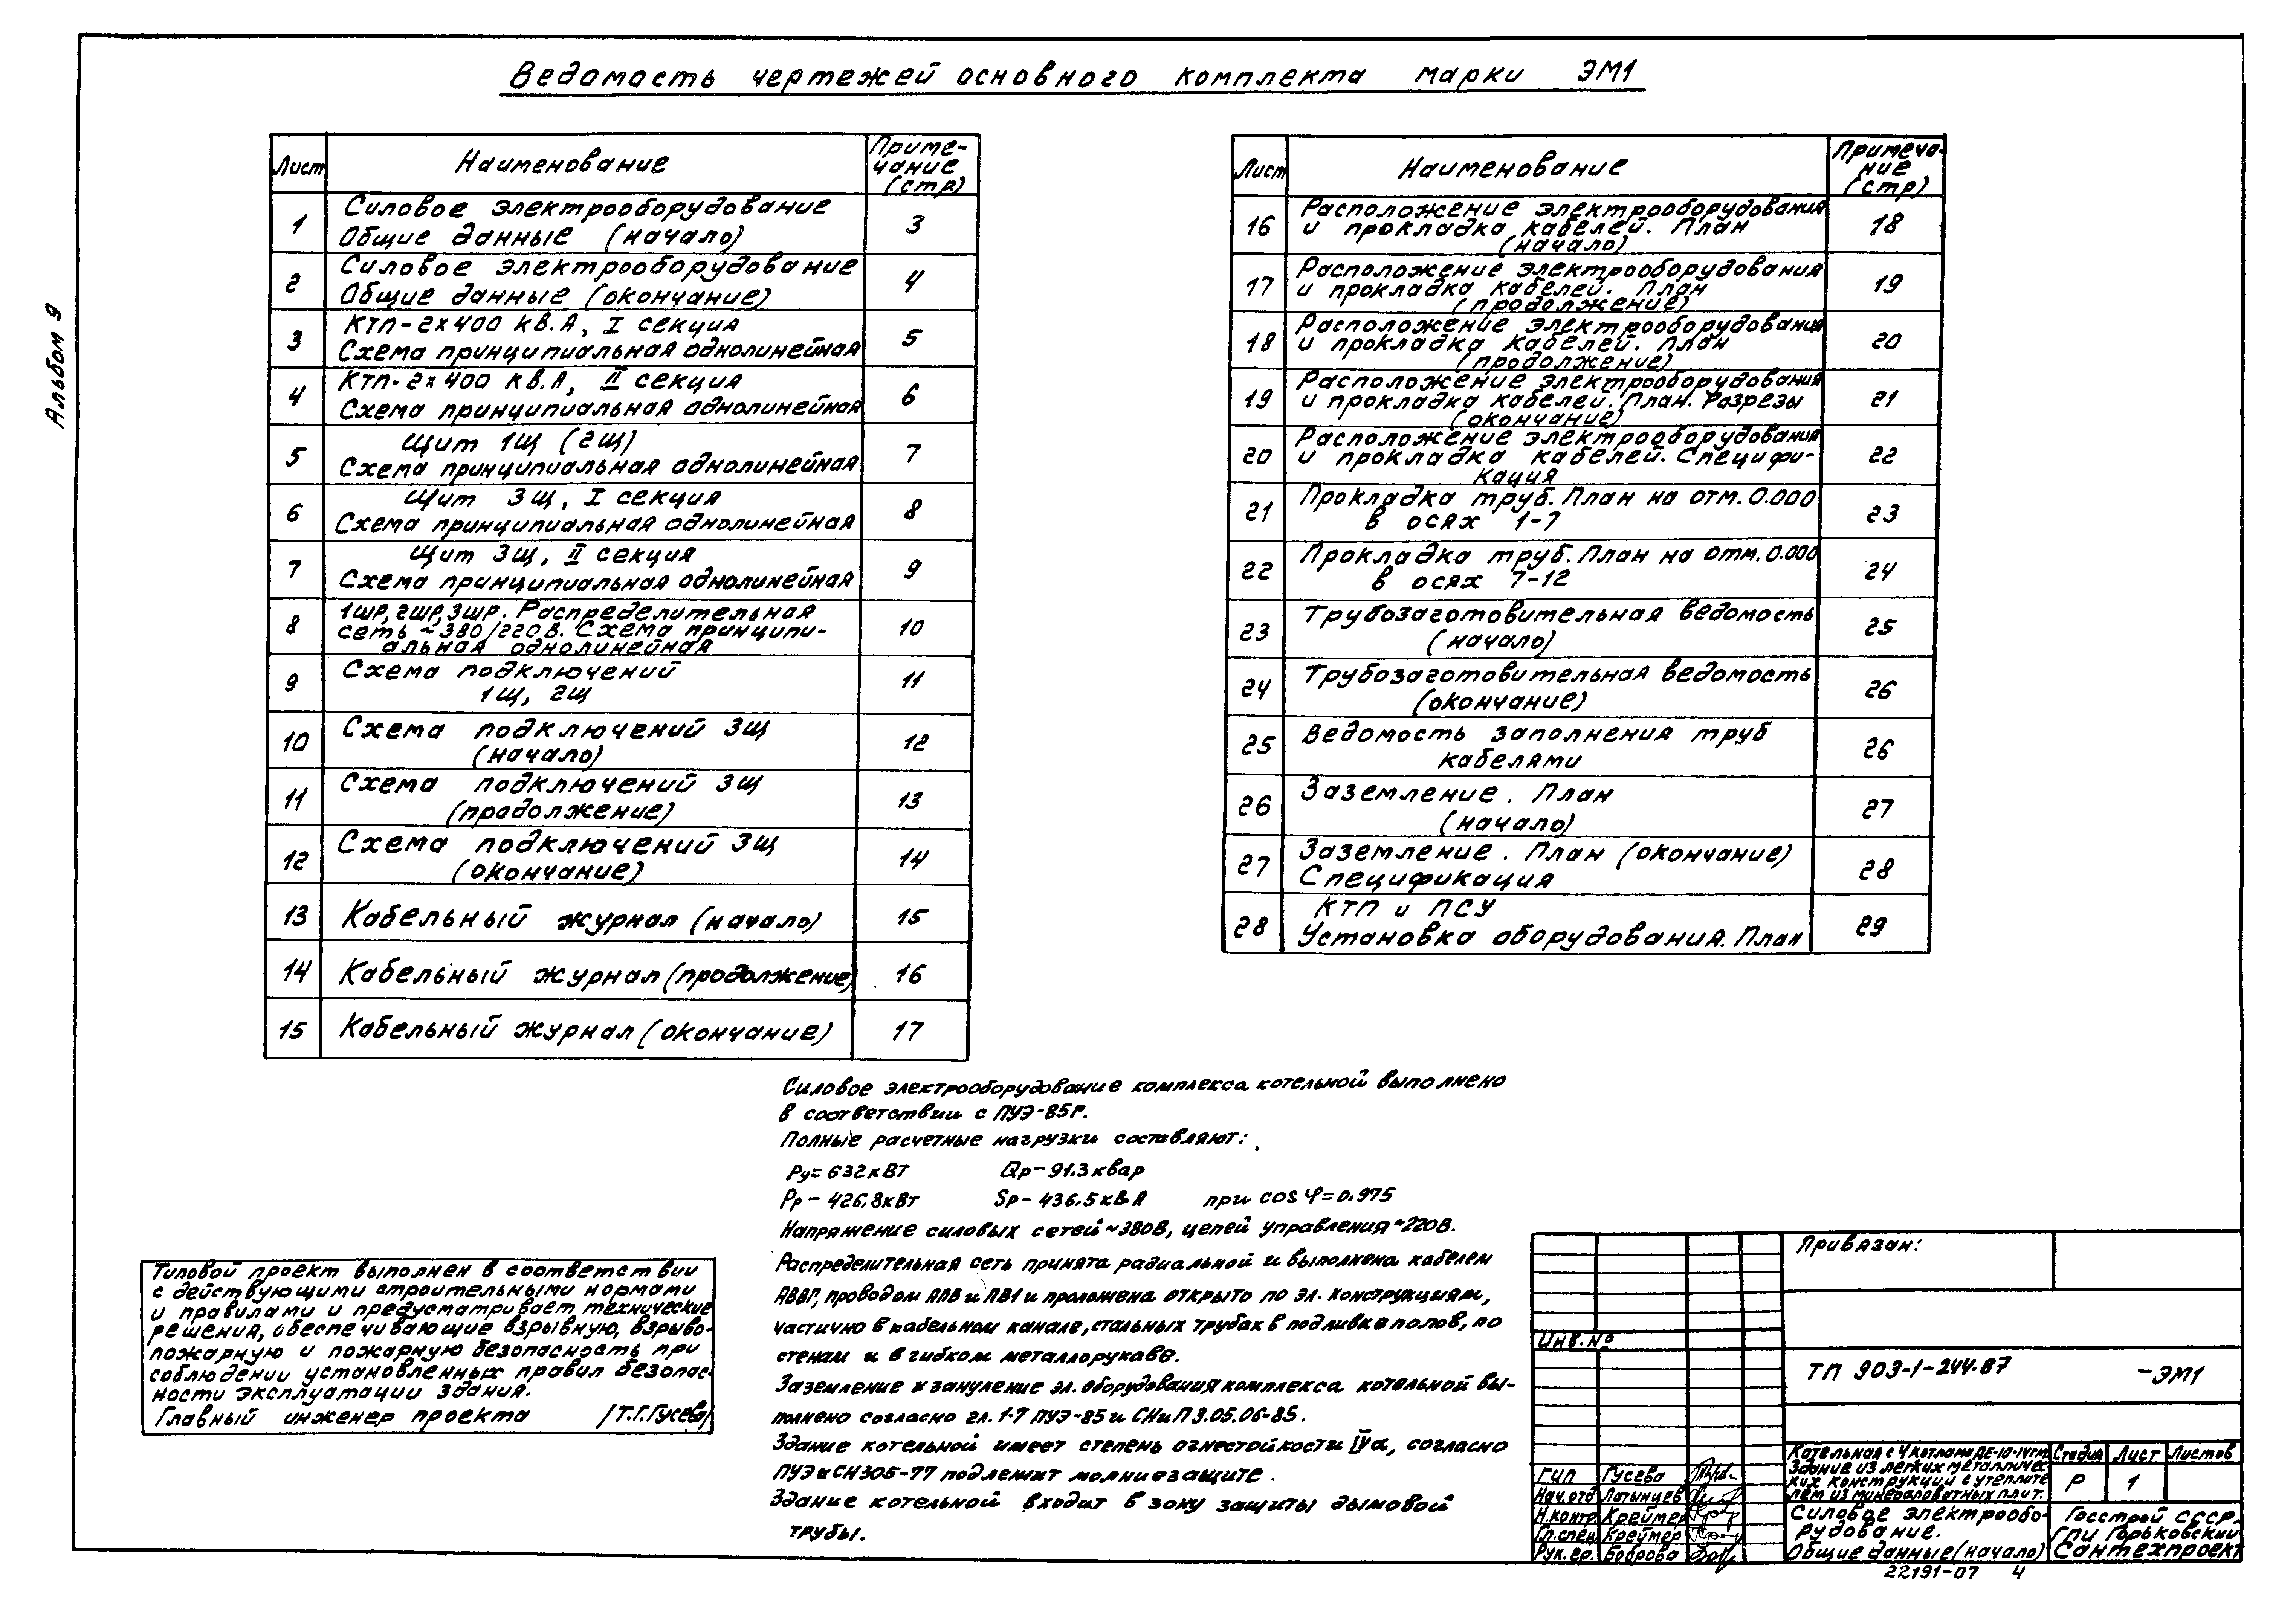 Альбом 9
Ведомость чертежей основного комплекта марки ЭМ1
Лист Наименование Примечание (стр)
1 Силовое электрооборудование
Общие данные (начало) 3
2 Силовое электрооборудование
Общие данные (окончание) 4
3 КТП-2х400 кв.А, I секция
Схема принципиальная однолинейная 5
4 КТП-2х400 кв.А, II секция
Схема принципиальная однолинейная 6
5 Щит 1щ (2щ)
Схема принципиальная однолинейная 7
6 Щит 3щ, I секция
Схема принципиальная однолинейная 8
7 Щит 3щ, II секция
Схема принципиальная однолинейная 9
8 1шр, 2шр, 3шр. Распределительная
сеть ~380/220в. Схема принципи-
альная однолинейная 10
9 Схема подключений
1щ, 2щ 11
10 Схема подключений 3щ
(начало) 12
11 Схема подключений 3щ
(продолжение) 13
12 Схема подключений 3щ
(окончание) 14
13 Кабельный журнал (начало) 15
14 Кабельный журнал (продолжение) 16
15 Кабельный журнал (окончание) 17
Лист Наименование Примечание (стр)
16 Расположение электрооборудования
и прокладка кабелей. План
(начало) 18
17 Расположение электрооборудования
и прокладка кабелей. План
(продолжение) 19
18 Расположение электрооборудования
и прокладка кабелей. План
(продолжение) 20
19 Расположение электрооборудования
и прокладка кабелей. План. Разрезы
(окончание) 21
20 Расположение электрооборудования
и прокладка кабелей. Специфи-
кация 22
21 Прокладка труб. План на отм. 0.000
в осях 1-7 23
22 Прокладка труб. План на отм. 0.000
в осях 7-12 24
23 Трубозаготовительная ведомость
(начало) 25
24 Трубозаготовительная ведомость
(окончание) 26
25 Ведомость заполнения труб
кабелями 26
26 Заземление. План
(начало) 27
27 Заземление. План (окончание)
Спецификация 28
28 КТП и ПСУ
Установка оборудования. План 29
Силовое электрооборудование комплекса котельной выполнено
в соответствии с ПУЭ-85г.
Полные расчетные нагрузки составляют:
Ру=632кВт Qр-91.3квар
Рр-426,8кВт Sр-436.5кВ.А при cos φ=0.975
Напряжение силовых сетей ~380В, цепей управления ~220В.
Распределительная сеть принята радиальной и выполнена кабелем
АВВГ, проводом АПВ и ПВ1 и проложена открыто по эл. конструкциям,
частично в кабельном канале, стальных трубах в подливке полов, по
стенам и в гибком металлорукаве.
Заземление и зануление эл. оборудования комплекса котельной вы-
полнено согласно гл. 1-7 ПУЭ-85 и СНиП 3.05.06-85.
Здание котельной имеет степень огнестойкости IVа, согласно
ПУЭ и СН305-77 подлежит молниезащите.
Здание котельной входит в зону защиты дымовой
трубы.
Типовой проект выполнен в соответствии
с действующими строительными нормами
и правилами и предусматривает технические
решения, обеспечивающие взрывную, взрыво-
пожарную и пожарную безопасность при
соблюдении установленных правил безопас-
ности эксплуатации здания.
Главный инженер проекта /Т.Г.Гусева/
Привязан:
Инв. №
ТП 903-1-244.87 -ЭМ1
ГИП Гусева
Нач.отд Латынцев
Н.контр Креймер
Гл.спец Креймер
Рук.гр. Боброва
Котельная с 4 котлами ДЕ-10-14гм
Здание из легких металличес-
ких конструкций с утеплите
лем из минераловатных плит.
Стадия Лист Листов
Р 1
Силовое электрообо-
рудование.
Общие данные (начало)
Госстрой СССР
ГПИ Горьковский
Сантехпроект
22191-07 4